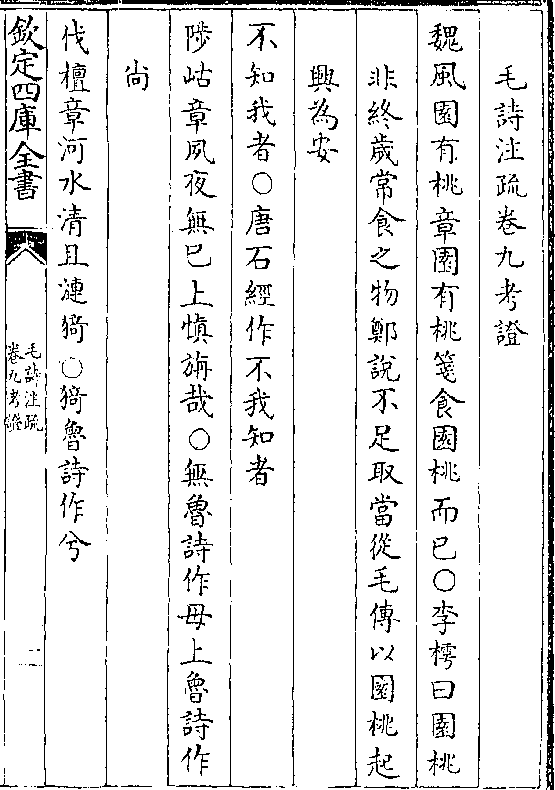 毛詩注疏卷九考證
魏風園有桃章園有桃箋食園桃而已○李樗曰園桃
非終歲常食之物鄭說不足取當從毛傳以園桃起
興為安
不知我者○唐石經作不我知者
陟岵章夙夜無已上慎旃哉○無魯詩作毋上魯詩作
尚
伐檀章河水清且漣猗○猗魯詩作兮
欽定四庫全書
毛詩注疏
卷九考證
一